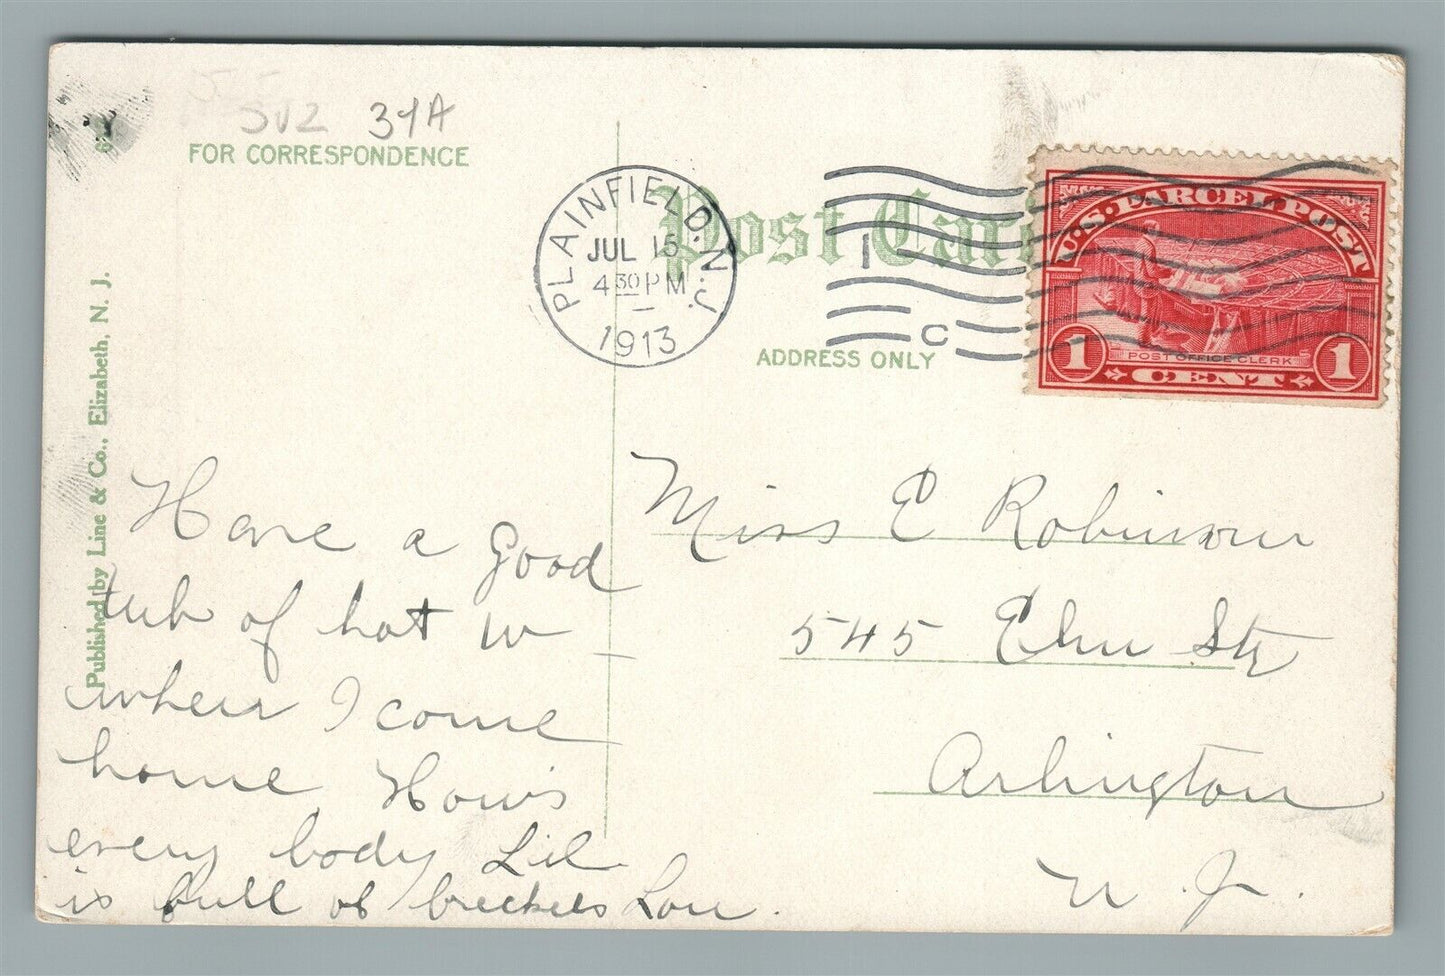 502 34A
FOR CORRESPONDENCE
Post Card
ADDRESS ONLY
PLAINFIELD. N.J.
JUL 15
4 30 PM
1913
1
C
U.S. PARCEL POST
POST OFFICE CLERK
1 CENT 1
Published by Line & Co., Elizabeth, N. J.
Have a good
tub of hot w
when I come
home How's
every body Lil
is full of Lou.
Miss E Robinson
545 Elm Str
Arlington
N. J.